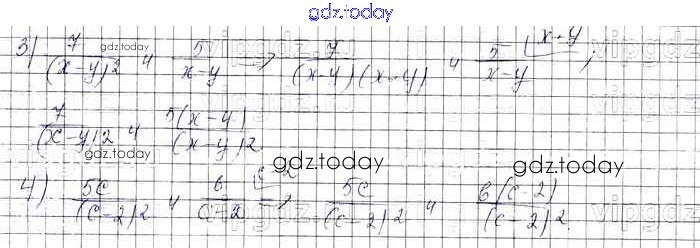 gdz.today
3) 7/(x-y)2 и 5/x-y; 7/(x-y)(x-y) и 5/x-y x-y;
7/(x-y)2 и 5(x-y)/(x-y)2
gdz.today gdz.today gdz.today
4) 5c/(c-2)2 и 6/c-2 c-2; 5c/(c-2)2 и 6(c-2)/(c-2)2